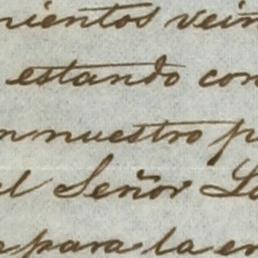 nientos vein
estando con
n nuestro p
el Señor La
para la en